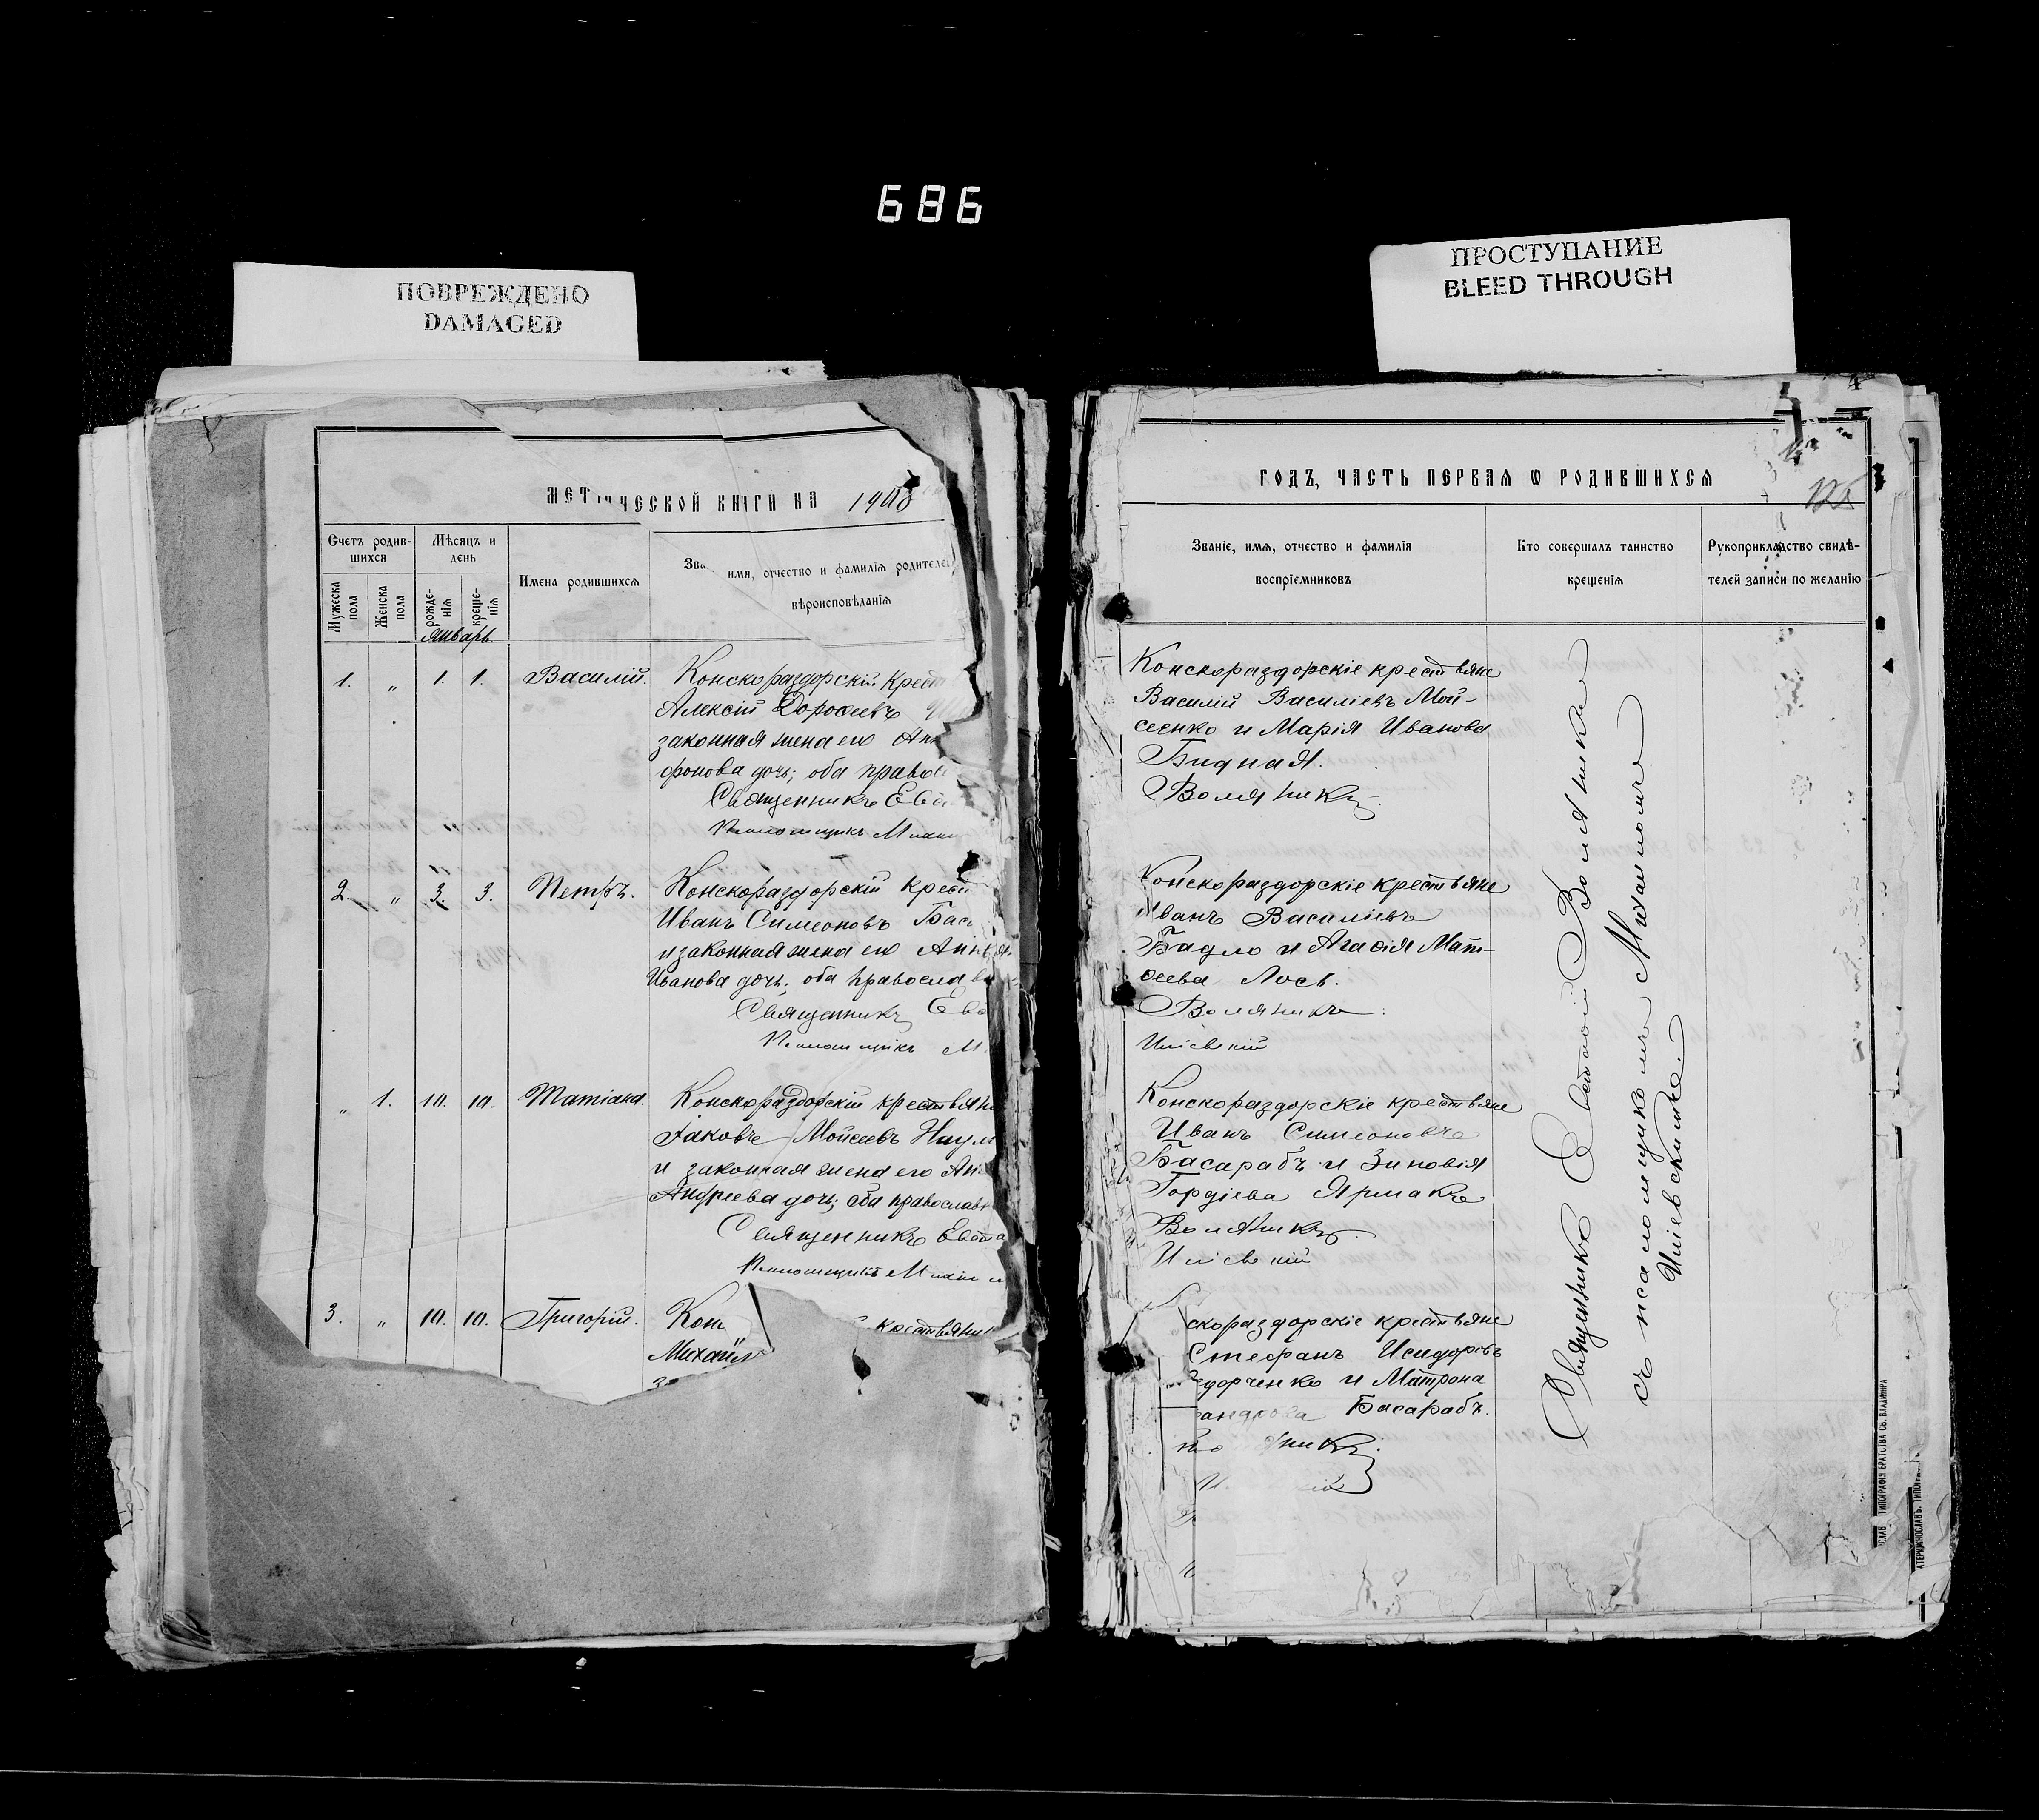 686
ПОВРЕЖДЕНО
DAMAGED
ПРОСТУПАНИЕ
BLEED THROUGH
МЕТ ИЧЕСКОЙ КНИГИ НА 1908
Счетъ родив-
шихся
Мѣсяцъ и
день
Имена родившихся
Зва имя, отчество и фамилія родителе
вѣроисповѣданія
Мужеска
пола
Женска
пола
рожде-
нія
креще-
нія
Январь.
1. „ 1. 1. Василій. Конскораздорскій Крест
Алексій Дорофеевъ
законная жена его Анн
фонова дочь; оба правос
Священникъ Евст
Псаломщикъ Миха
2. „ 3. 3. Петръ. Конскораздорскій крест
Иванъ Симеоновъ Бас
и законная жена его Анн
Иванова дочь; оба православ
Священникъ Евс
Псаломщикъ М
„ 1. 10. 10. Татіана. Конскораздорскій крестьяни
Іаковъ Мойсеевъ Наум
и законная жена его Ан
Андреева дочь; оба православн
Священникъ Евста
Псаломщикъ Михаи
3. „ 10. 10. Григорій. Кон крестьянин
Михаил
4
ГОДЪ, ЧАСТЬ ПЕРВАЯ Ѡ РОДИВШИХСЯ
Званіе, имя, отчество и фамилія
воспріемниковъ
Кто совершалъ таинство
крещенія
Рукоприкладство свидѣ-
телей записи по желанію
Конскораздорскіе крестьяне
Василій Василіевъ Мой-
сеенко и Марія Иванова
Бидная.
Воляникъ
Конскораздорскіе крестьяне
Иванъ Василіевъ
Бадло и Агафія Мат-
феева Лось.
Воляникъ
Иліевскій
Конскораздорскіе крестьяне
Иванъ Симеоновъ
Басарабъ и Зиновія
Гордіева Ярмакъ
Воляникъ
Иліевскій
скораздорскіе крестьяне
Стефанъ Исидоровъ
едорченко и Матрона
андрова Басарабъ.
никъ
Священникъ Евстафій Воляникъ
съ псаломщикомъ Михаиломъ
Иліевскимъ
СЛАВ. ТИПОГРАФІЯ БРАТСТВА СВ. ВЛАДИМІРА
АТЕРИНОСЛАВЪ. ТИПОГ